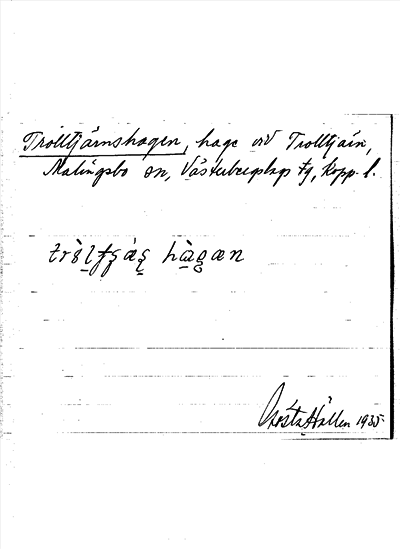 Trolltjärnshagen, hage vid Trolltjärn,
Malingsbo sn, Västerbergslags fg, Kopp. l.
hàgæn
Gösta Hallén 1935